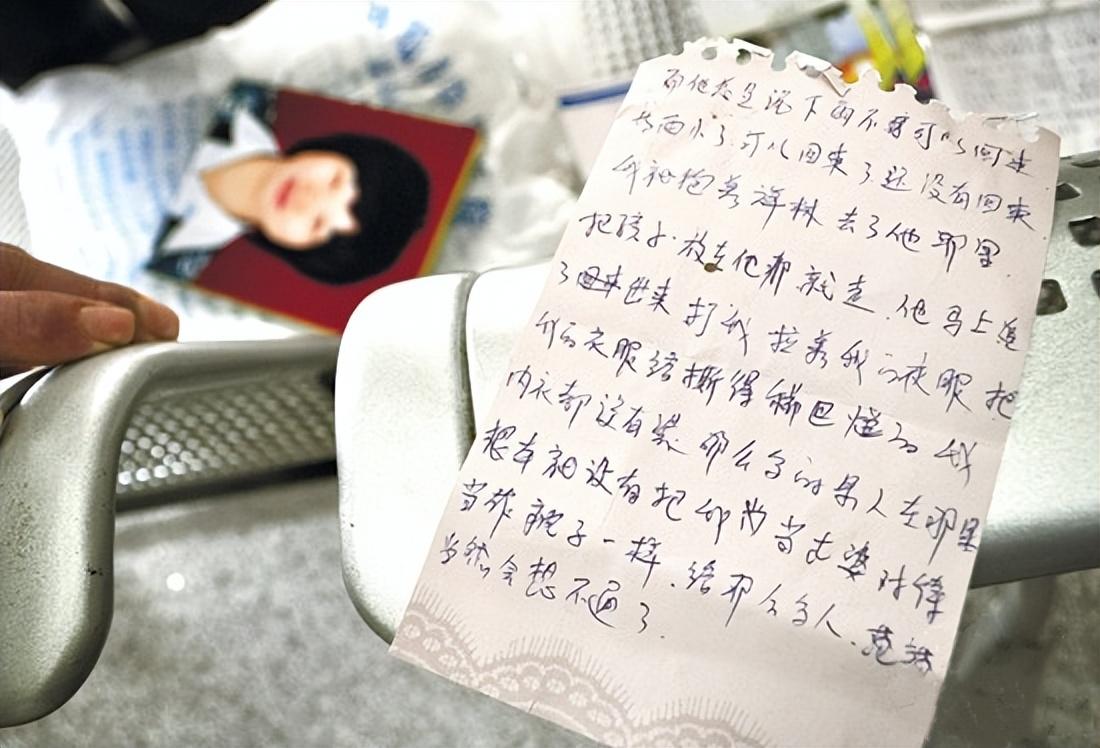 而他老是说下雨不能可以回来
当雨小了.可以回来了还没有回来.
我就抱着祥林去了他那里.
把孩子.放在他那就走.他马上追
了出来打我拉着我的衣服把
我的衣服给撕得稀巴烂了我
内衣都没有装.那么多的男人在那里
根本就没有把我当老婆对待
当作疯子一样.给那么多人.
当然会想不通了.